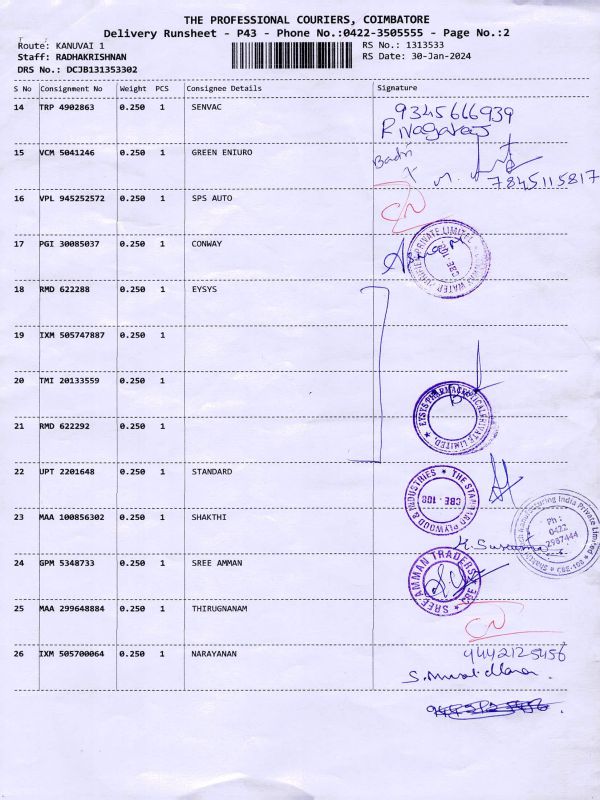 THE PROFESSIONAL COURIERS, COIMBATORE
Delivery Runsheet - P43 - Phone No.:0422-3505555 - Page No.:2
Route: KANUVAI 1 RS No.: 1313533
Staff: RADHAKRISHNAN RS Date: 30-Jan-2024
DRS No.: DCJB131353302
S No Consignment No Weight PCS Consignee Details Signature
14 TRP 4902863 0.250 1 SENVAC
9345666939
15 VCM 5041246 0.250 1 GREEN ENIURO
Badri
7845115817
16 VPL 945252572 0.250 1 SPS AUTO
CN
17 PGI 30085037 0.250 1 CONWAY
PRIVATE LIMITED
CBE
18 RMD 622288 0.250 1 EYSYS
19 IXM 505747887 0.250 1
20 TMI 20133559 0.250 1
EYSYS PHARMACEUTICAL PRIVATE LIMITED.
21 RMD 622292 0.250 1
22 UPT 2201648 0.250 1 STANDARD
THE STANDARD PLYWOOD & INDUSTRIES
CBE - 108
23 MAA 100856302 0.250 1 SHAKTHI
Manufacturing India Private Limited
Ph :
0422
2987444
CBE-108
24 GPM 5348733 0.250 1 SREE AMMAN
SREE AMMAN TRADERS
CBE
25 MAA 299648884 0.250 1 THIRUGNANAM
CN
26 IXM 505700064 0.250 1 NARAYANAN
9442125456